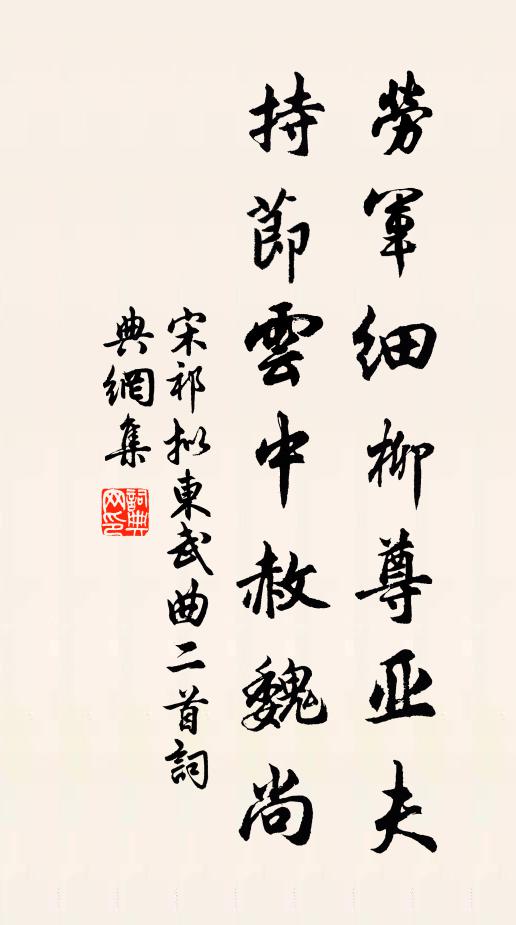 勞軍細柳尊亚夫
持節雲中赦魏尚
宋祁拟東武曲二首詞
典網集
詞典网印